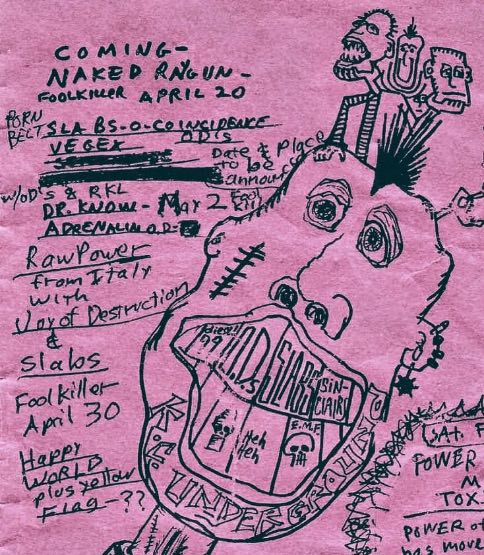 COMING-
NAKED RAYGUN-
FOOLKILLER APRIL 20
PORN
BELT
SLABS-O-COINCIDENCE
OD'S
VEGEX
Date & Place
to be
w/OD's & RKL
DR. KNOW - May 2
ADRENALIN O.D.
RawPower
from Italy
with
Joy of Destruction
&
Slabs
FoolKiller
April 30
Happy
WORLD
plus yellow
Flag-??
SLABS
SIN-
CLAIR
E.M.F
Heh
Heh
K.C. UNDERGROUND
SAT. F
POWER
M
TOX
POWER of
has move